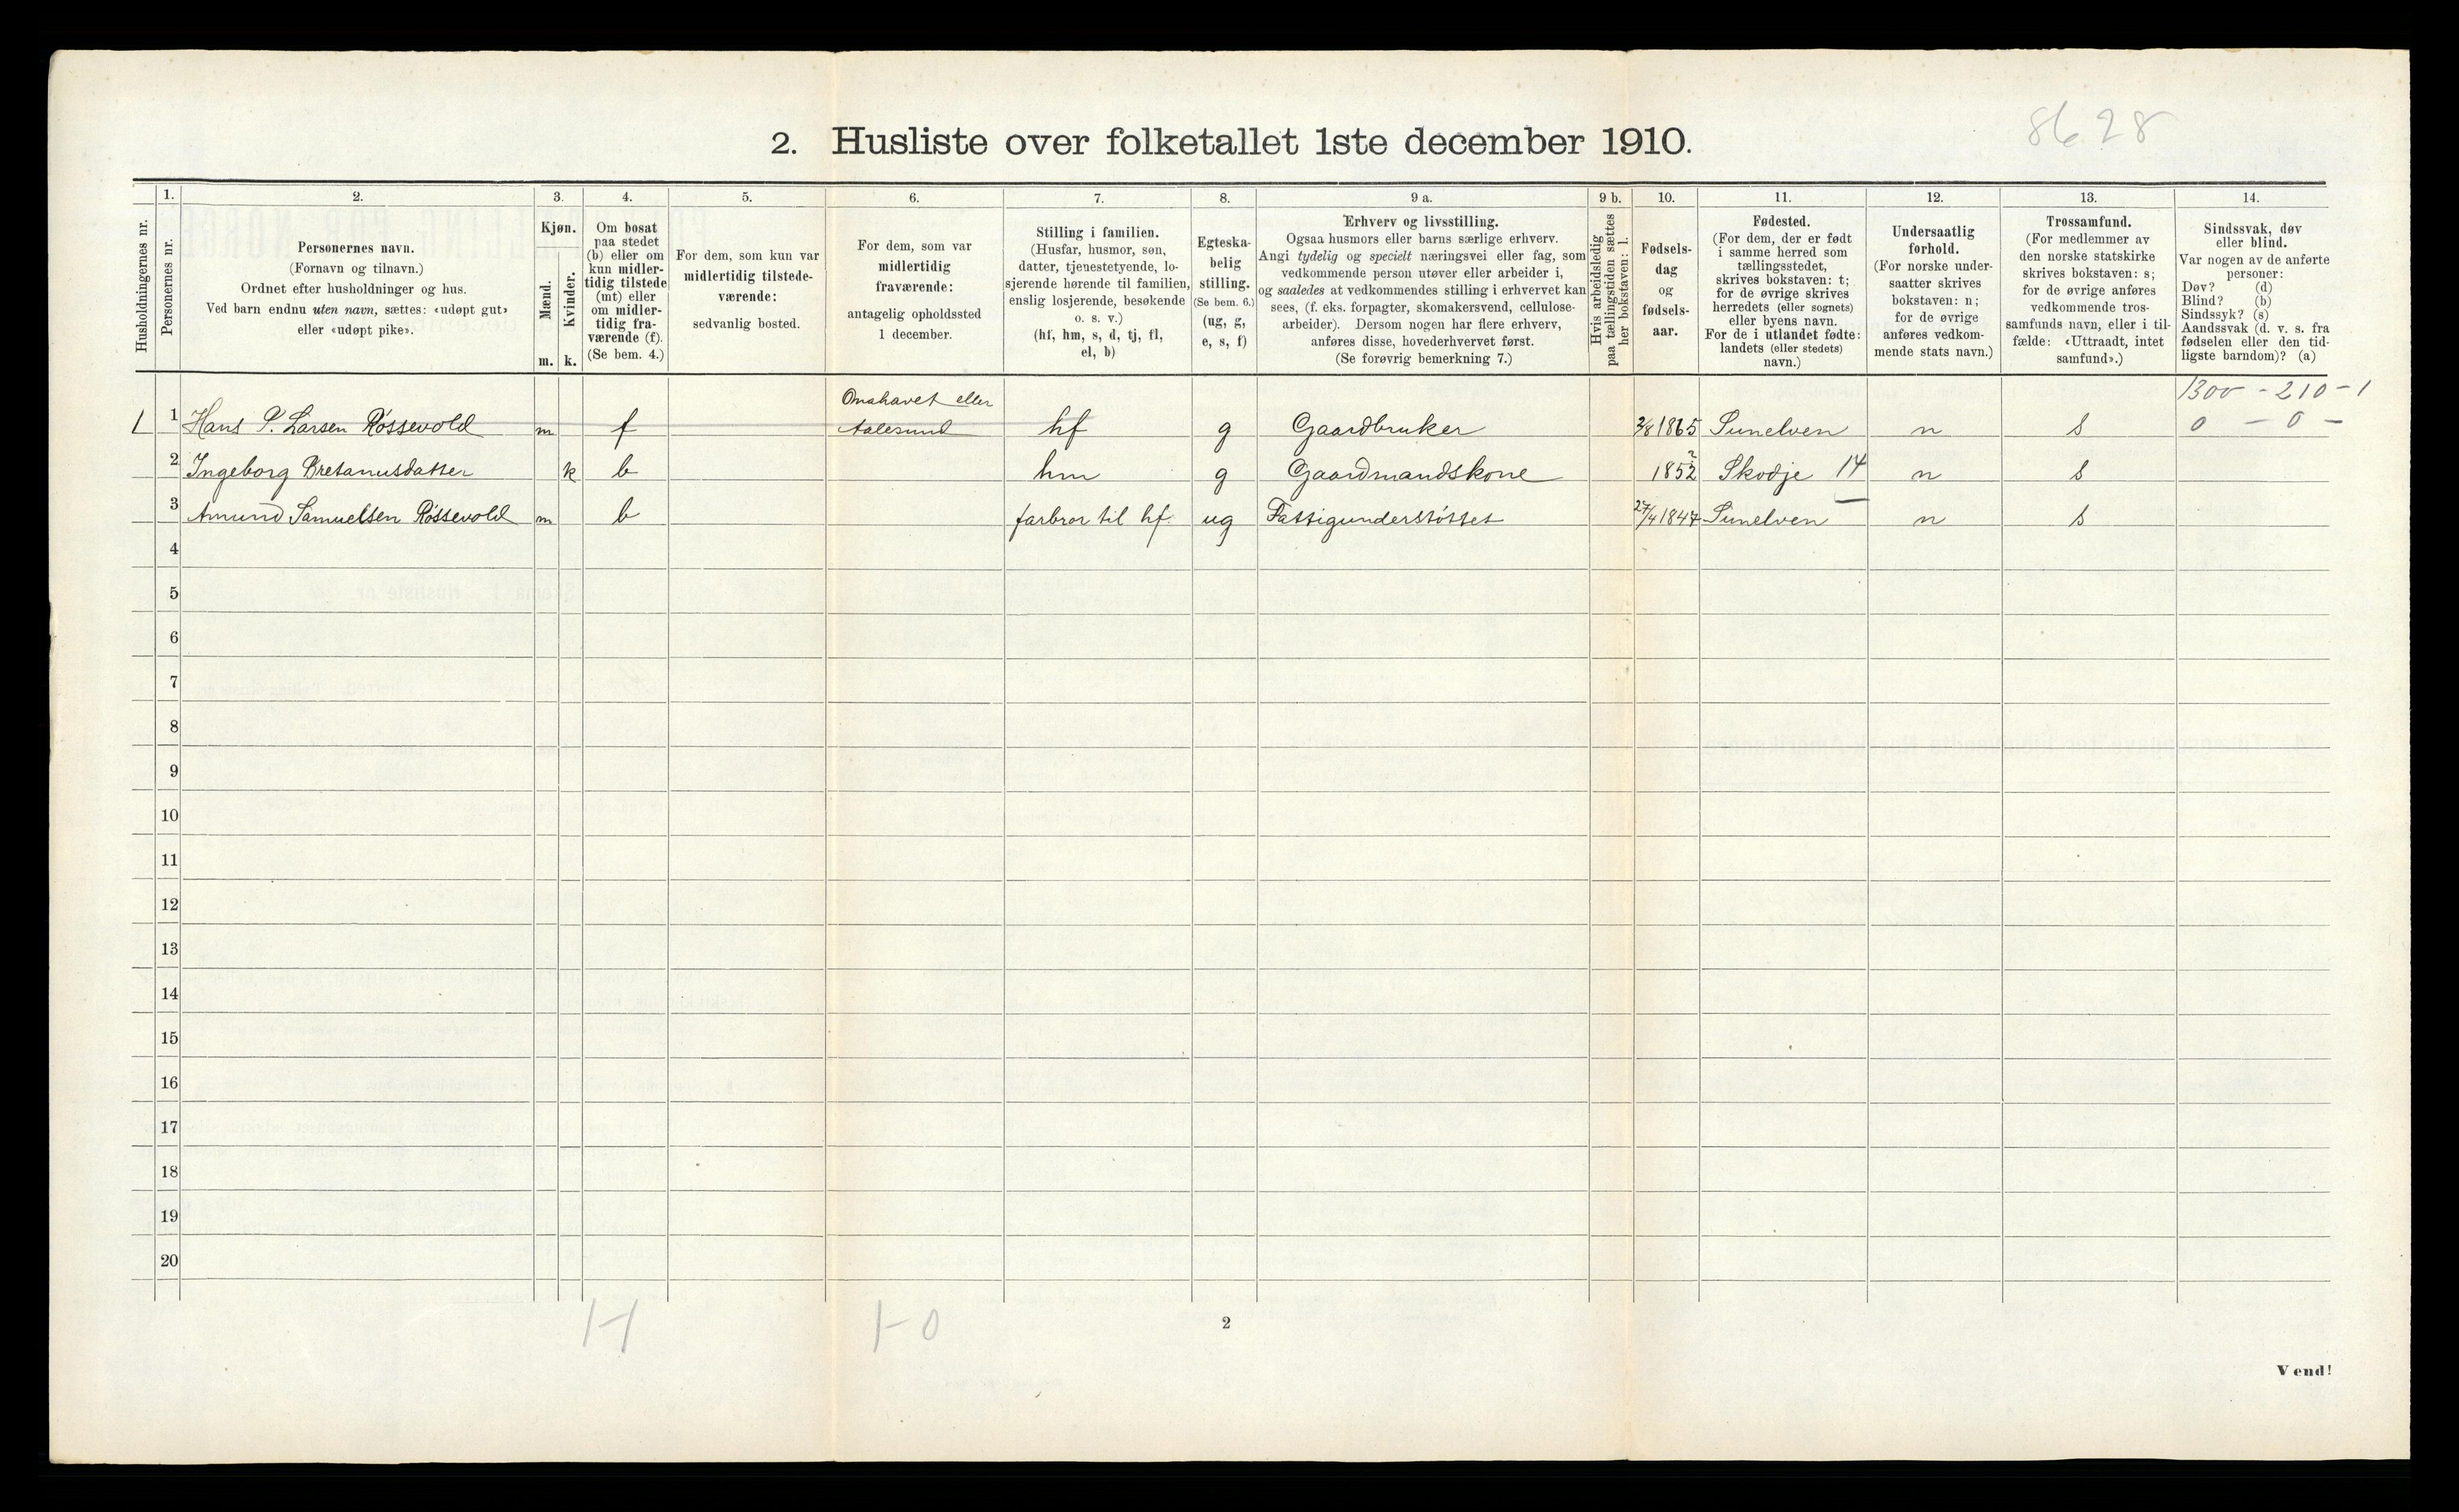 8628
2. Husliste over folketallet 1ste december 1910.
Husholdningernes nr.
1.
Personernes nr.
2.
Personernes navn.
(Fornavn og tilnavn.)
Ordnet efter husholdninger og hus.
Ved barn endnu uten navn, sættes: «udøpt gut»
eller «udøpt pike».
3.
Kjøn.
Mænd.
Kvinder.
m. k.
4.
Om bosat
paa stedet
(b) eller om
kun midler-
tidig tilstede
(mt) eller
om midler-
tidig fra-
værende (f).
(Se bem. 4.)
5.
For dem, som kun var
midlertidig tilstede-
værende:
sedvanlig bosted.
6.
For dem, som var
midlertidig
fraværende:
antagelig opholdssted
1 december.
7.
Stilling i familien.
(Husfar, husmor, søn,
datter, tjenestetyende, lo-
sjerende hørende til familien,
enslig losjerende, besøkende
o. s. v.)
(hf, hm, s, d, tj, fl,
el, b)
8.
Egteska-
belig
stilling.
(Se bem. 6.)
(ug, g,
e, s, f)
9 a.
Erhverv og livsstilling.
Ogsaa husmors eller barns særlige erhverv.
Angi tydelig og specielt næringsvei eller fag, som
vedkommende person utøver eller arbeider i,
og saaledes at vedkommendes stilling i erhvervet kan
sees, (f. eks. forpagter, skomakersvend, cellulose-
arbeider). Dersom nogen har flere erhverv,
anføres disse, hovederhvervet først.
(Se forøvrig bemerkning 7.)
9 b.
Hvis arbeidsledig
paa tællingstiden sættes
her bokstaven: l.
10.
Fødsels-
dag
og
fødsels-
aar.
11.
Fødested.
(For dem, der er født
i samme herred som
tællingsstedet,
skrives bokstaven: t;
for de øvrige skrives
herredets (eller sognets)
eller byens navn.
For de i utlandet fødte:
landets (eller stedets)
navn.)
12.
Undersaatlig
forhold.
(For norske under-
saatter skrives
bokstaven: n;
for de øvrige
anføres vedkom-
mende stats navn.)
13.
Trossamfund.
(For medlemmer av
den norske statskirke
skrives bokstaven: s;
for de øvrige anføres
vedkommende tros-
samfunds navn, eller i til-
fælde: «Uttraadt, intet
samfund».)
14.
Sindssvak, døv
eller blind.
Var nogen av de anførte
personer:
Døv? (d)
Blind? (b)
Sindssyk? (s)
Aandssvak (d. v. s. fra
fødselen eller den tid-
ligste barndom)? (a)
1300 - 210 - 1
0 - 0 -
1 1 Hans P. Larsen Røssevold m f Onahavet eller Aalesund hf g Gaardbruker 2/8 1865 Sunelven n s
2 Ingeborg Bretanusdatter k b hm g Gaardmandskone 1852 ? Skodje 14 n s
3 Amund Samuelsen Røssevold m b farbror til hf. ug Fattigunderstøttet 27/4 1847 Sunelven n s
4
5
6
7
8
9
10
11
12
13
14
15
16
17
18
19
20
1-1
1-0
2
Vend!